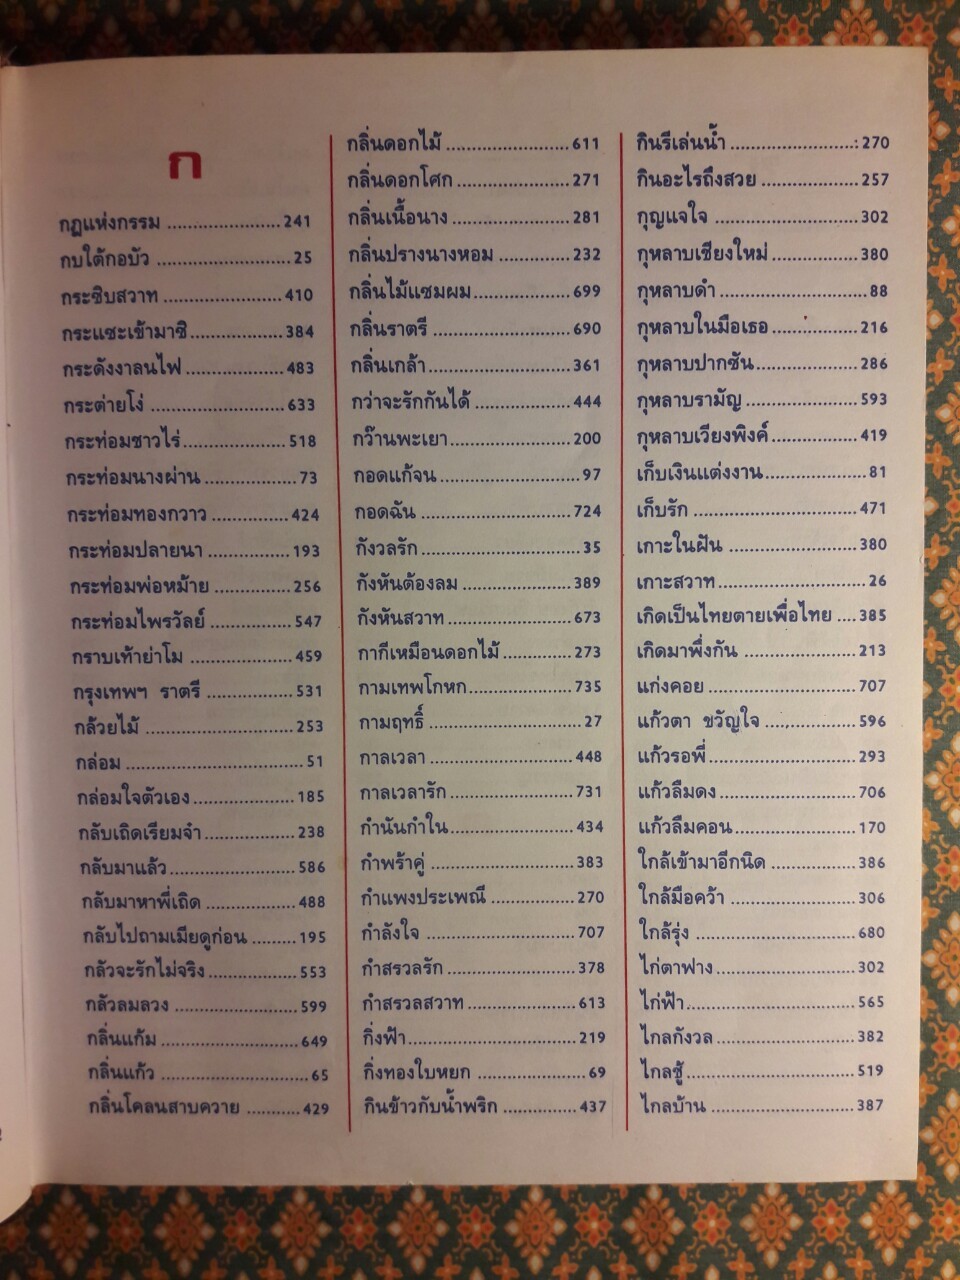 ก
กฎแห่งกรรม ..................... 241
กบใต้กอบัว ..................... 25
กระซิบสวาท ..................... 410
กระแซะเข้ามาซิ ..................... 384
กระดังงาลนไฟ ..................... 483
กระต่ายโง่ ..................... 633
กระท่อมชาวไร่ ..................... 518
กระท่อมนางผ่าน ..................... 73
กระท่อมทองกวาว ..................... 424
กระท่อมปลายนา ..................... 193
กระท่อมพ่อหม้าย ..................... 256
กระท่อมไพรวัลย์ ..................... 547
กราบเท้าย่าโม ..................... 459
กรุงเทพฯ ราตรี ..................... 531
กล้วยไม้ ..................... 253
กล่อม ..................... 51
กล่อมใจตัวเอง ..................... 185
กลับเถิดเรียมจ๋า ..................... 238
กลับมาแล้ว ..................... 586
กลับมาหาพี่เถิด ..................... 488
กลับไปถามเมียดูก่อน ......... 195
กลัวจะรักไม่จริง ..................... 553
กลัวลมลวง ..................... 599
กลิ่นแก้ม ..................... 649
กลิ่นแก้ว ..................... 65
กลิ่นโคลนสาบควาย ........... 429
กลิ่นดอกไม้ ..................... 611
กลิ่นดอกโศก ..................... 271
กลิ่นเนื้อนาง ..................... 281
กลิ่นปรางนางหอม ............. 232
กลิ่นไม้แซมผม ..................... 699
กลิ่นราตรี ..................... 690
กลิ่นเกล้า ..................... 361
กว่าจะรักกันได้ ..................... 444
กว๊านพะเยา ..................... 200
กอดแก้จน ..................... 97
กอดฉัน ..................... 724
กังวลรัก ..................... 35
กังหันต้องลม ..................... 389
กังหันสวาท ..................... 673
กากีเหมือนดอกไม้ ............. 273
กามเทพโกหก ..................... 735
กามฤทธิ์ ..................... 27
กาลเวลา ..................... 448
กาลเวลารัก ..................... 731
กำนันกำใน ..................... 434
กำพร้าคู่ ..................... 383
กำแพงประเพณี ..................... 270
กำลังใจ ..................... 707
กำสรวลรัก ..................... 378
กำสรวลสวาท ..................... 613
กิ่งฟ้า ..................... 219
กิ่งทองใบหยก ..................... 69
กินข้าวกับน้ำพริก ............. 437
กินรีเล่นน้ำ ..................... 270
กินอะไรถึงสวย ..................... 257
กุญแจใจ ..................... 302
กุหลาบเชียงใหม่ ..................... 380
กุหลาบดำ ..................... 88
กุหลาบในมือเธอ ..................... 216
กุหลาบปากซัน ..................... 286
กุหลาบรามัญ ..................... 593
กุหลาบเวียงพิงค์ ..................... 419
เก็บเงินแต่งงาน ..................... 81
เก็บรัก ..................... 471
เกาะในฝัน ..................... 380
เกาะสวาท ..................... 26
เกิดเป็นไทยตายเพื่อไทย .... 385
เกิดมาพึ่งกัน ..................... 213
แก่งคอย ..................... 707
แก้วตา ขวัญใจ ..................... 596
แก้วรอพี่ ..................... 293
แก้วลืมดง ..................... 706
แก้วลืมคอน ..................... 170
ใกล้เข้ามาอีกนิด ..................... 386
ใกล้มือคว้า ..................... 306
ใกล้รุ่ง ..................... 680
ไก่ตาฟาง ..................... 302
ไก่ฟ้า ..................... 565
ไกลกังวล ..................... 382
ไกลชู้ ..................... 519
ไกลบ้าน ..................... 387